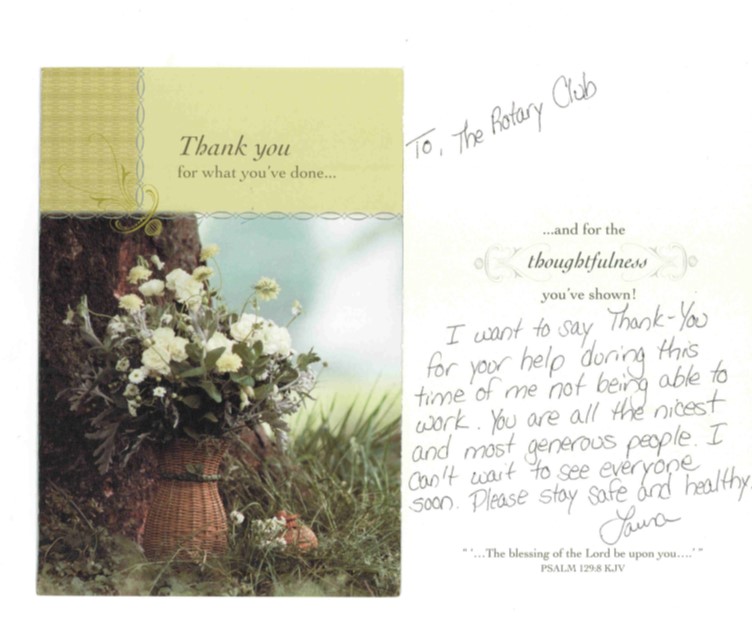 Thank you
for what you've done...
To, The Rotary Club
...and for the
thoughtfulness
you've shown!
I want to say Thank-You
for your help during this
time of me not being able to
work. You are all the nicest
and most generous people. I
can't wait to see everyone
soon. Please stay safe and healthy.
Laura
"'...The blessing of the Lord be upon you....'"
PSALM 129:8 KJV